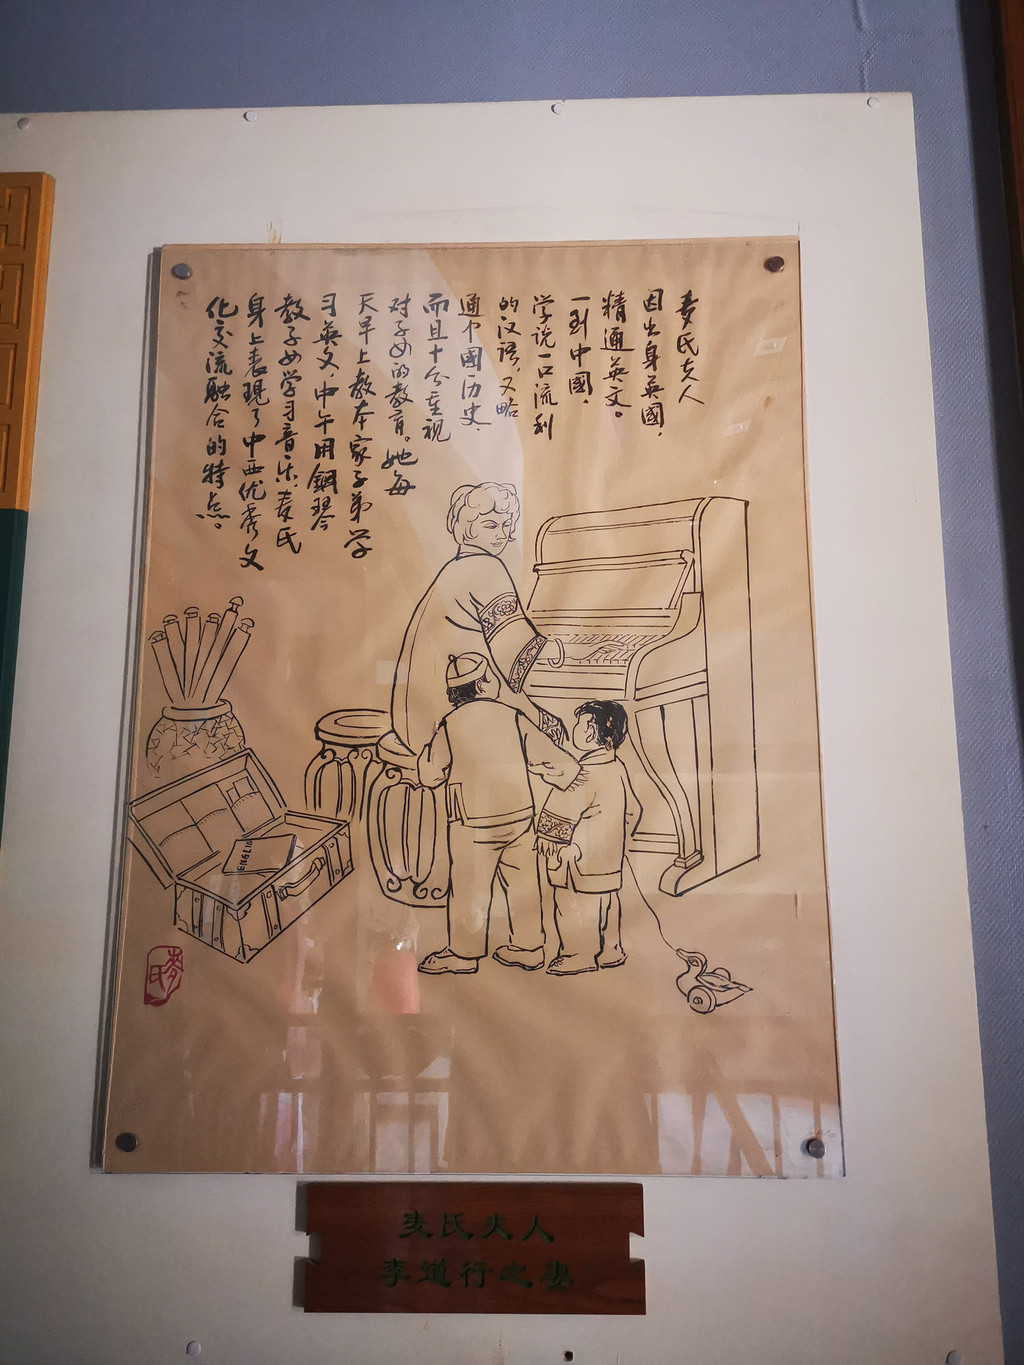 麦氏夫人
因出身英國，
精通英文。
一到中國，
学说一口流利
的汉语，又略
通中國历史，
而且十分重视
对子女的教育。她每
天早上教本家子弟学
习英文，中午用鋼琴
教子女学习音乐，麦氏
身上表现了中西优秀文
化交流融合的特点。
ENGLI
麦氏
麦氏夫人
李道行之妻